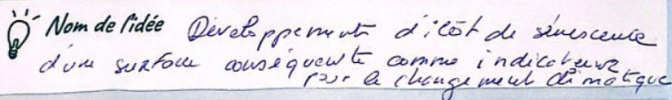 Nom de l'idée Développements d'îlot de sénescence
d'une surface conséquente comme indicateurs
pour le changement climatique